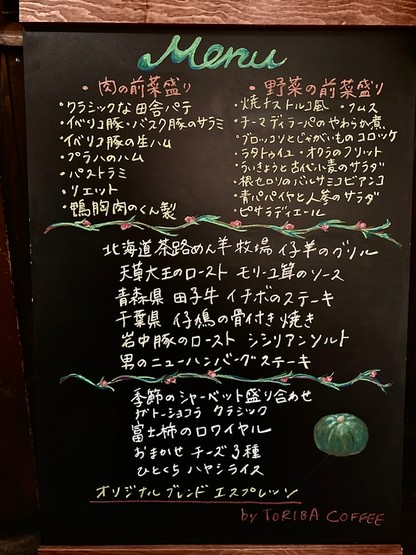 Menu
・肉の前菜盛り
・クラシックな田舎パテ
・イベリコ豚・バスク豚のサラミ
・イベリコ豚の生ハム
・プラハのハム
・パストラミ
・リエット
・鴨胸肉のくん製
・野菜の前菜盛り
・焼ナス トルコ風 ・フムス
・チーマ ディ ラーパの やわらか煮
・ブロッコリとじゃがいものコロッケ
・ラタトゥイユ ・オクラのフリット
・ういきょうと古代小麦のサラダ
・根セロリのバルサミコビアンコ
・青パパイヤと人参のサラダ
・ピサラディエール
北海道 茶路めん羊牧場 仔羊のグリル
天草大王のロースト モリーユ茸のソース
青森県 田子牛 イチボのステーキ
千葉県 仔鳩の骨付き焼き
岩中豚のロースト シシリアンソルト
男のニューハンバーグステーキ
季節のシャーベット盛り合わせ
ガトーショコラ クラシック
富士柿のロワイヤル
おまかせ チーズ3種
ひとくち ハヤシライス
オリジナルブレンド エスプレッソ
by TORIBA COFFEE